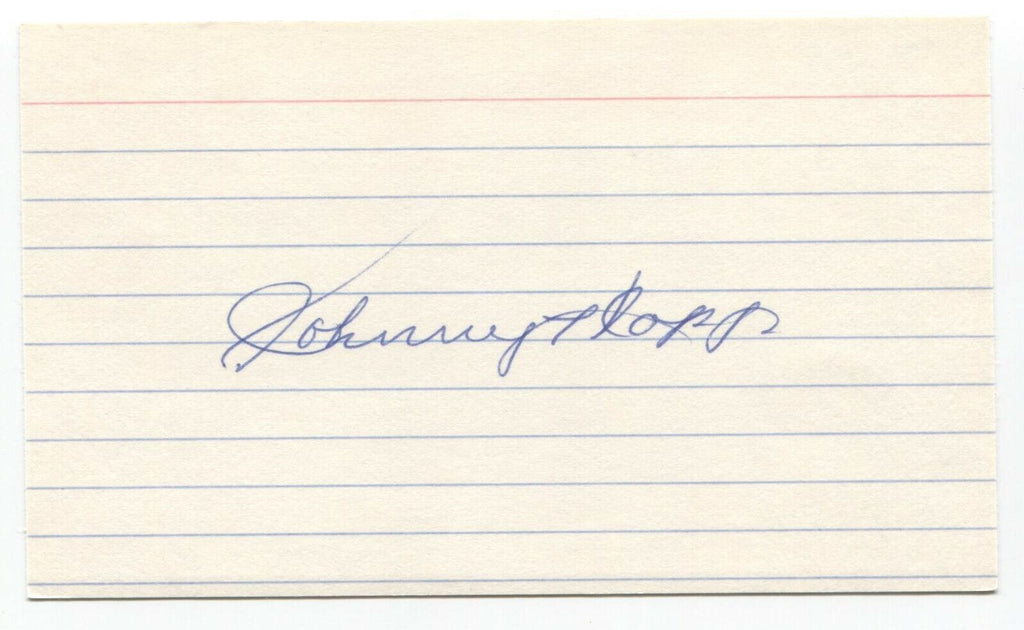 Johnny Hopp